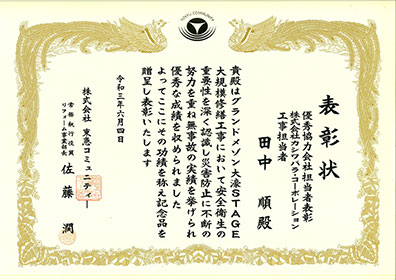 TOKYU COMMUNITY
表彰状
優秀協力会社担当者表彰
株式会社カシワバラ・コーポレーション
工事担当者
田中 順殿
貴殿はグランドメゾン大濠STAGE
大規模修繕工事において安全衛生の
重要性を深く認識し災害防止に不断の
努力を重ね無事故の実績を挙げられ
優秀な成績を収められました
よってここにその功績を称え記念品を
贈呈し表彰いたします
令和三年六月四日
株式会社 東急コミュニティー
常務執行役員
リフォーム事業部長
佐藤 潤